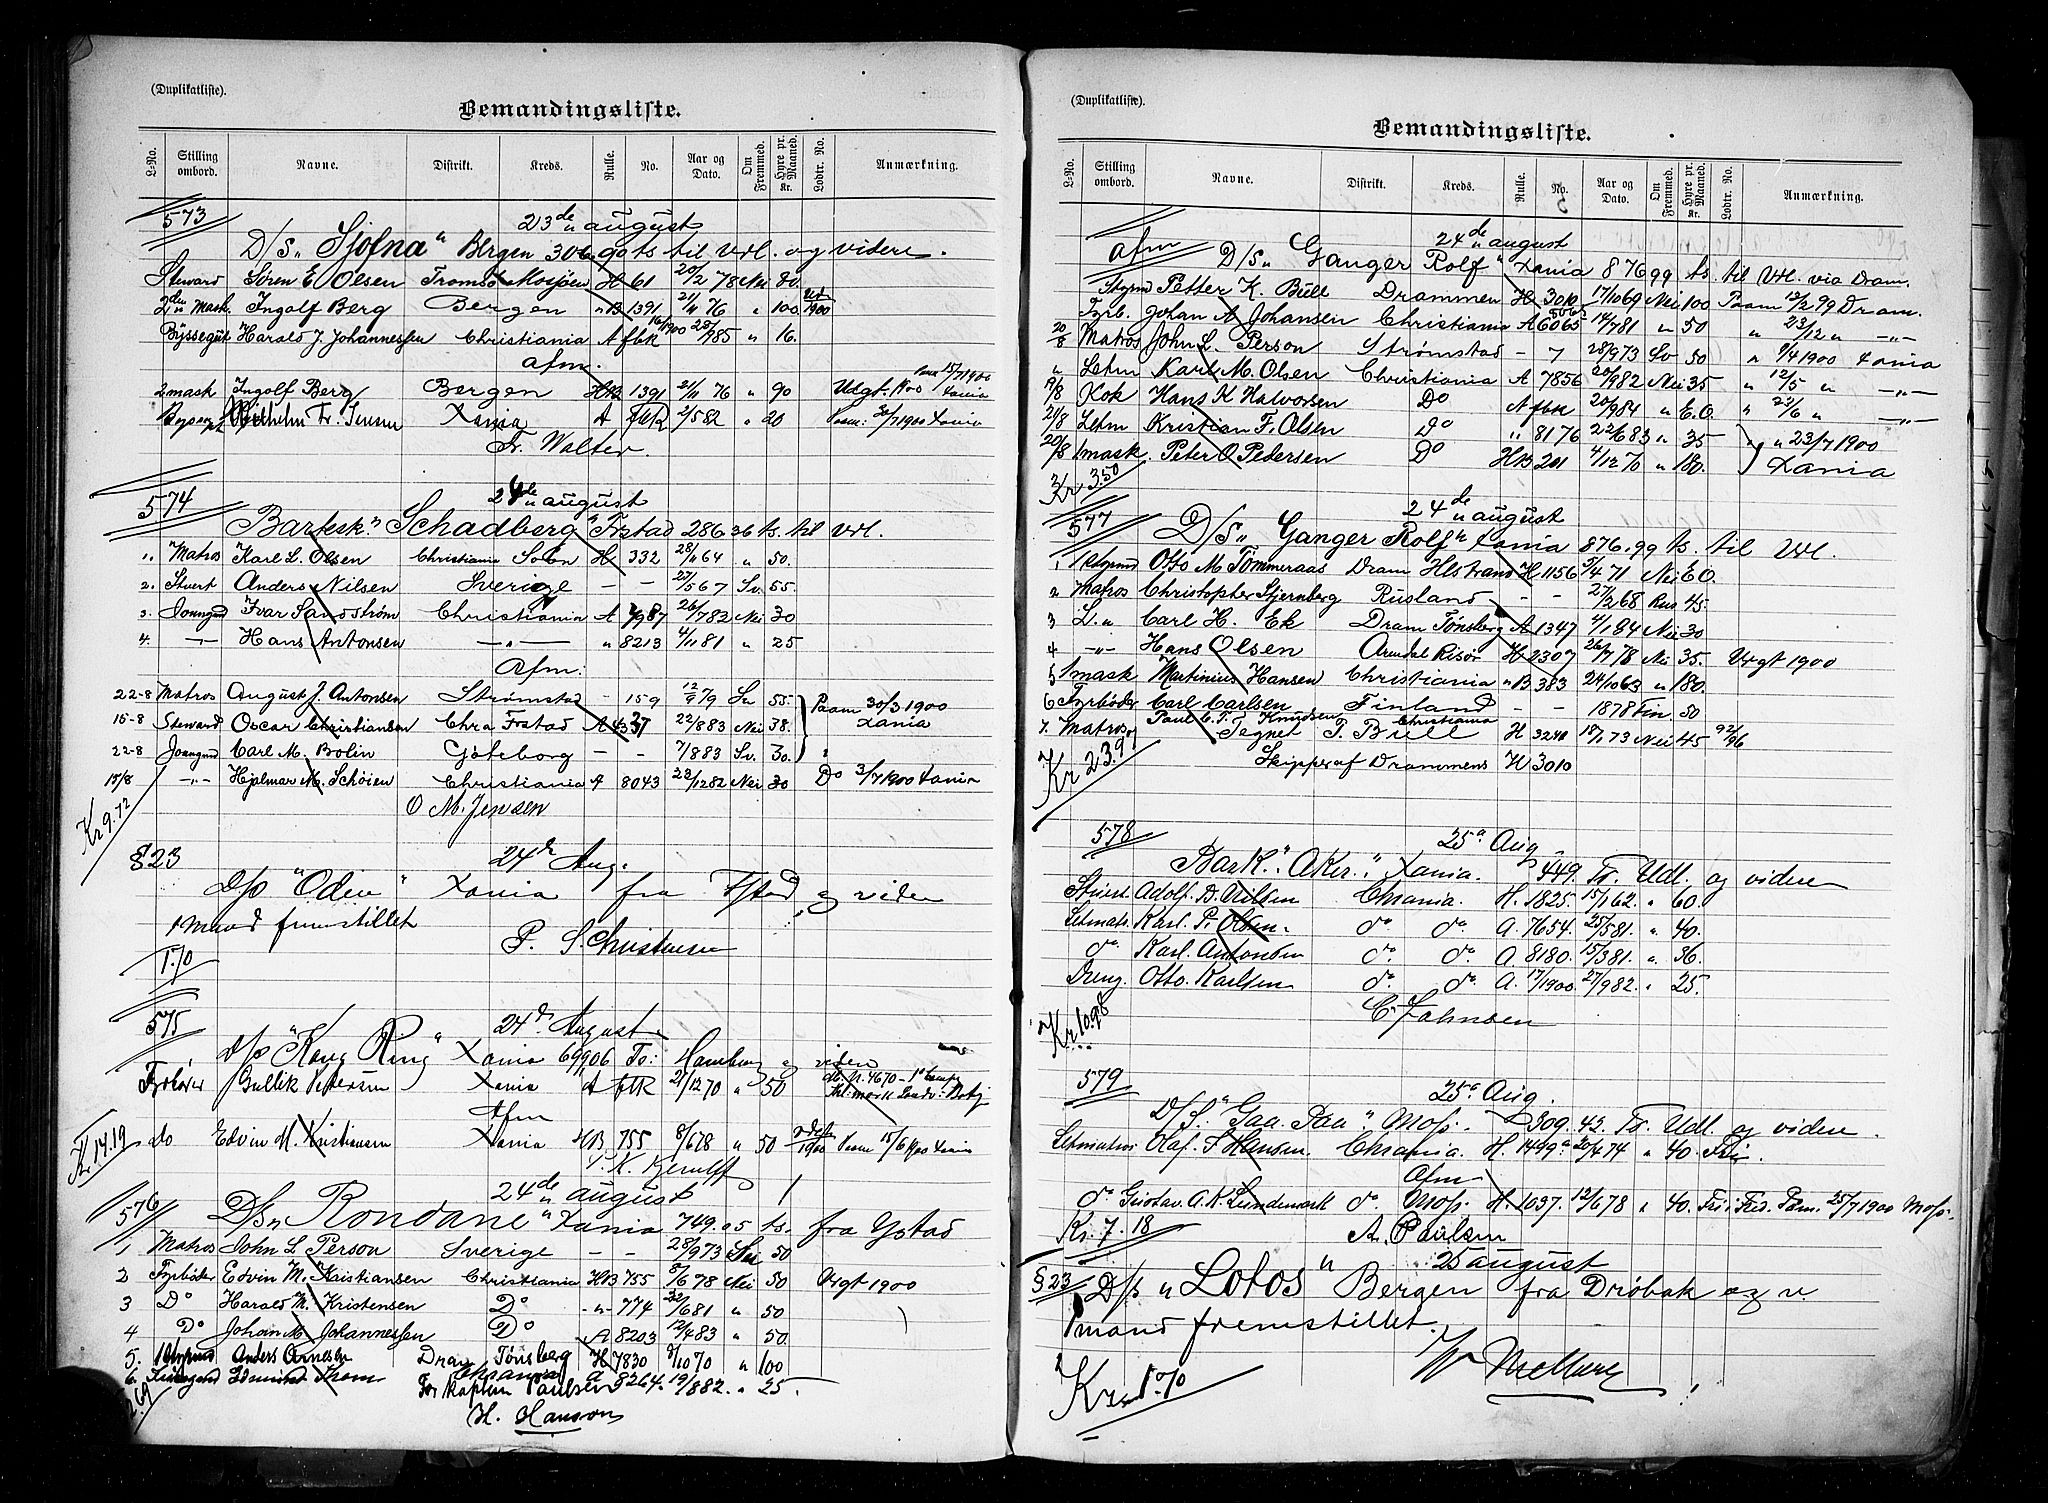 (Duplikatliste).
Bemandingsliste.
L-No. Stilling ombord. Navne. Distrikt. Kreds. Rulle. No. Aar og Dato. Om Fremmed. Hyre pr. Maaned. Kr. Lodtr. No. Anmærkning.
573 23de august
D/S „Sjofna" Bergen 306.90 ts til Url. og videre.
Steward Søren E Olsen Tromsö Mosjöen H 61 20/2 78 Nei 80
2den Mask. Ingolf Berg Bergen „ B 1391 21/11 76 „ 100
Byssegut Harald J. Johannessen Christiania A fbk 25/9 85 „ 16.
Afm.
2 mask Ingolf Berg Bergen HB 1391 21/11 76 „ 90 Udgt. 1900 15/7 1900 Xania
Wilhelm Fr. Xania A fbk 2/5 82 „ 20 1900 Xania
Fr. Walter.
574 24de august
Bartsk. „Schadberg" Frstad 286 36 ts. til Url.
1. Matros Karl L. Olsen Christiania Solön H 332 28/11 64 „ 50.
2. Stuert Anders Nilsen Sverige – – 27/5 67 Sv. 55.
3. Joungmd Ivar Sandström Christiania A 7987 26/7 82 Nei 30
4. –„– Hans Antonsen –„– „ 8213 4/11 81 „ 25
Afm:
22-8 Matros August J. Antonsen Strømstad – 159 12/9 79 Sv 55. Paam 30/3 1900 Xania
15-8 Steward Oscar Christiansen Chra Frstad A 22/8 83 Nei 38.
22-8 Joungmd Carl M. Bolin Göteborg – – 7/8 83 Sv. 30. „
15/8 –„– Hjalmar M. Schöien Christiania A 8043 23/12 82 Nei 30 Do 3/7 1900 Xania
Kr 9.72 O M. Jensen
§23 24de Aug.
D/S "Odin" Xania fra Ystad og viden
1 mand fremstillet
P. S. Christensen
1.70
575 24de August
D/S "Kong Ring" Xania 69906 Ts: Hamburg og viden
Fyrböder Gullik Pettersen Xania A fbk 21/12 70 „ 50
Afm
Kr. 14.19 do Edvin M. Kristiansen Xania HB 755 8/6 78 „ 50 1900 Paam 15/6 1900 Xania
576 24de august
D/S „Rondane" Xania 749.05 ts. fra Ystad
1 Matros John L Person Sverige – – 28/9 73 Sv 50
2 Fyrböder Edvin M. Kristiansen Christiania HB 755 8/6 78 Nei 50 Argt 1900
3 Do Harald M. Kristensen Do –„– 774 22/6 81 „ 50
4 Do Johan M Johannessen Do A 8203 12/4 83 „ 50.
5. 1 Styrmd Anders Arnesen Dram Tönsberg H 7830 8/10 70 „ 100
6. Edmund Thom Chrania A 8264. 19/8 82. „ 25.
For Kaptein Paulsen
H. Hanson
(Duplikatliste).
Bemandingsliste.
L-No. Stilling ombord. Navne. Distrikt. Kreds. Rulle. No. Aar og Dato. Om Fremmed. Hyre pr. Maaned. Kr. Lodtr. No. Anmærkning.
afm 24de august
D/S „Ganger Rolf" Xania 876 99 ts. til Url. via Dram.
Styrmd Petter K. Bull Drammen H 3010 17/10 69 Nei 100 Paam 12/2 99 Dram.
Fyrb. Johan A Johansen Christiania A 6065 14/7 81 „ 50 „ 23/12 „ –„–
20/8 Matros John L. Person Strömstad – 7 28/9 73 Sv 50 „ 9/4 1900 Xania
„ Letm Karl M. Olsen Christiania A 7856 20/9 82 Nei 35 „ 12/5 „ –„–
19/8 Kok Hans K Halvorsen Do A fbk 20/9 84 „ E.O. „ 23/6 „ –„–
21/8 Letm Kristian F. Olsen Do „ 8176 22/6 83 „ 35 „ „ 23/7 1900
20/8 1 mask. Peter O. Pedersen Do HB 201 4/12 70 „ 180. Xania
Kr 3.50
577 24de august
D/S „Ganger Rolf" Xania 876.99 ts. til Url.
1 1 Styrmd Otto M Tömmeraas Dram Hlstrand H 1156 5/4 71 Nei E O.
2 Matros Christopher Stjernberg Rusland – – 27/2 68 Rus 45.
3 L. „ Carl H. Ek Dram Tönsberg A 1347 4/1 84 Nei 30
4 –„– Hans Olsen Arendal Risör H 2307 26/7 78 Nei 35. Argt 1900
5 1 mask Martinius Hansen Christiania „ B 383 24/10 63 „ 180.
6 Fyrböder Carl Carlsen Finland – – 1878 Fin. 50
7. Matros Paul C. F. Knudsen Christiania H 3240 18/1 73 Nei 45 92/96
Tegnet P. Bull
Kr 23.97 Skipper af Drammens H 3010
578 25de Aug
Bark. "Aker." Xania. 449. Ts. Udl. og videre
Stuert. Adolf. B. Nilsen Chrania. H. 1825. 15/1 62. „ 60.
Letmatr. Karl. P. Olsen. do do. A. 7654. 25/5 81. „ 40.
do. Karl. Antonsen do. do. A. 8180. 15/3 81. „ 36.
Dreng. Otto. Karlsen do do. A. 17/1900. 27/9 82. „ 25.
C. Johnsen
Kr. 10.98
579 25de Aug.
D/S. "Gaa. Paa". Moss. 309. 42. Ts. Udl. og videre.
Letmatros Olaf. S Hansen. Chrania. H. 1499 20/4 74 „ 40. Fri.
Afm
do. Gustav. A. K. Lundemark do. Moss. H. 1037. 12/6 78 „ 40. Fri. Fred. Paam. 25/7 1900 Moss.
Kr. 7. 18 A. Paulsen
25 august
§ 23 D/S „Lotos" Bergen fra Dröbak og v.
1 mand fremstillet.
Kr. 1.70